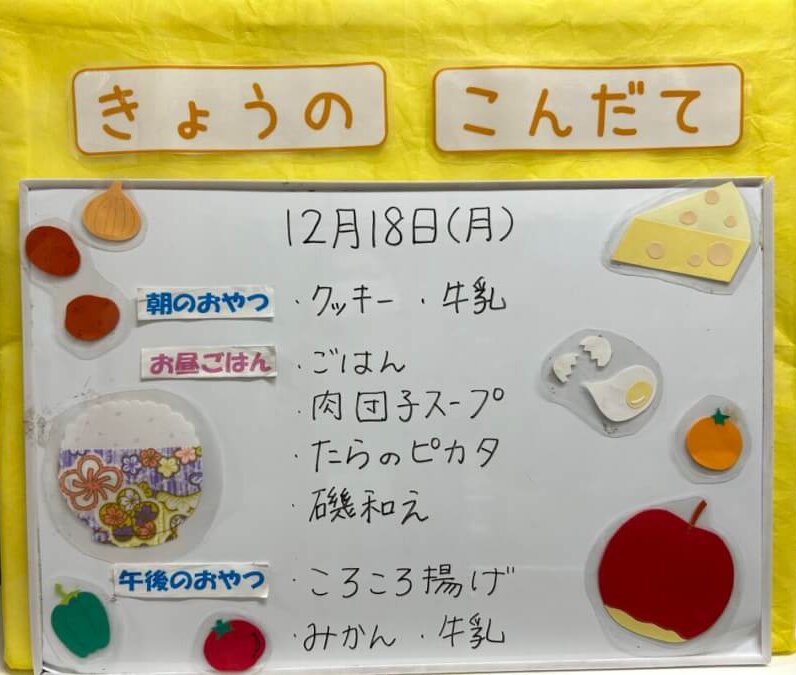 きょうの こんだて
12月18日(月)
朝のおやつ ・クッキー ・牛乳
お昼ごはん ・ごはん
・肉団子スープ
・たらのピカタ
・磯和え
午後のおやつ ・ころころ揚げ
・みかん ・牛乳